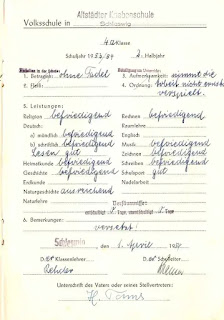 Altstädter Knabenschule
Volksschule in Schleswig
4a Klasse
Schuljahr 1953/54 2. Halbjahr
1. Betragen: ohne Tadel 3. Aufmerksamkeit: nimmt die
2. Fleiß: 4. Ordnung: Arbeit nicht ernst
verspielt.
5. Leistungen:
Religion befriedigend Rechnen befriedigend
Deutsch: Raumlehre
a) mündlich befriedigend Werken
b) schriftlich befriedigend Musik befriedigend
Lesen gut Zeichnen befriedigend
Heimatkunde befriedigend Schreiben befriedigend
Geschichte befriedigend Schulsport gut
Erdkunde Nadelarbeit
Naturgeschichte ausreichend
Naturlehre
Versäumnisse:
entschuldigt 2 Tage, unentschuldigt Tage
6. Bemerkungen:
versetzt!
Schleswig, den 1. April 1954
Der Klassenlehrer Der Schulleiter
Unterschrift des Vaters oder seines Stellvertreters: